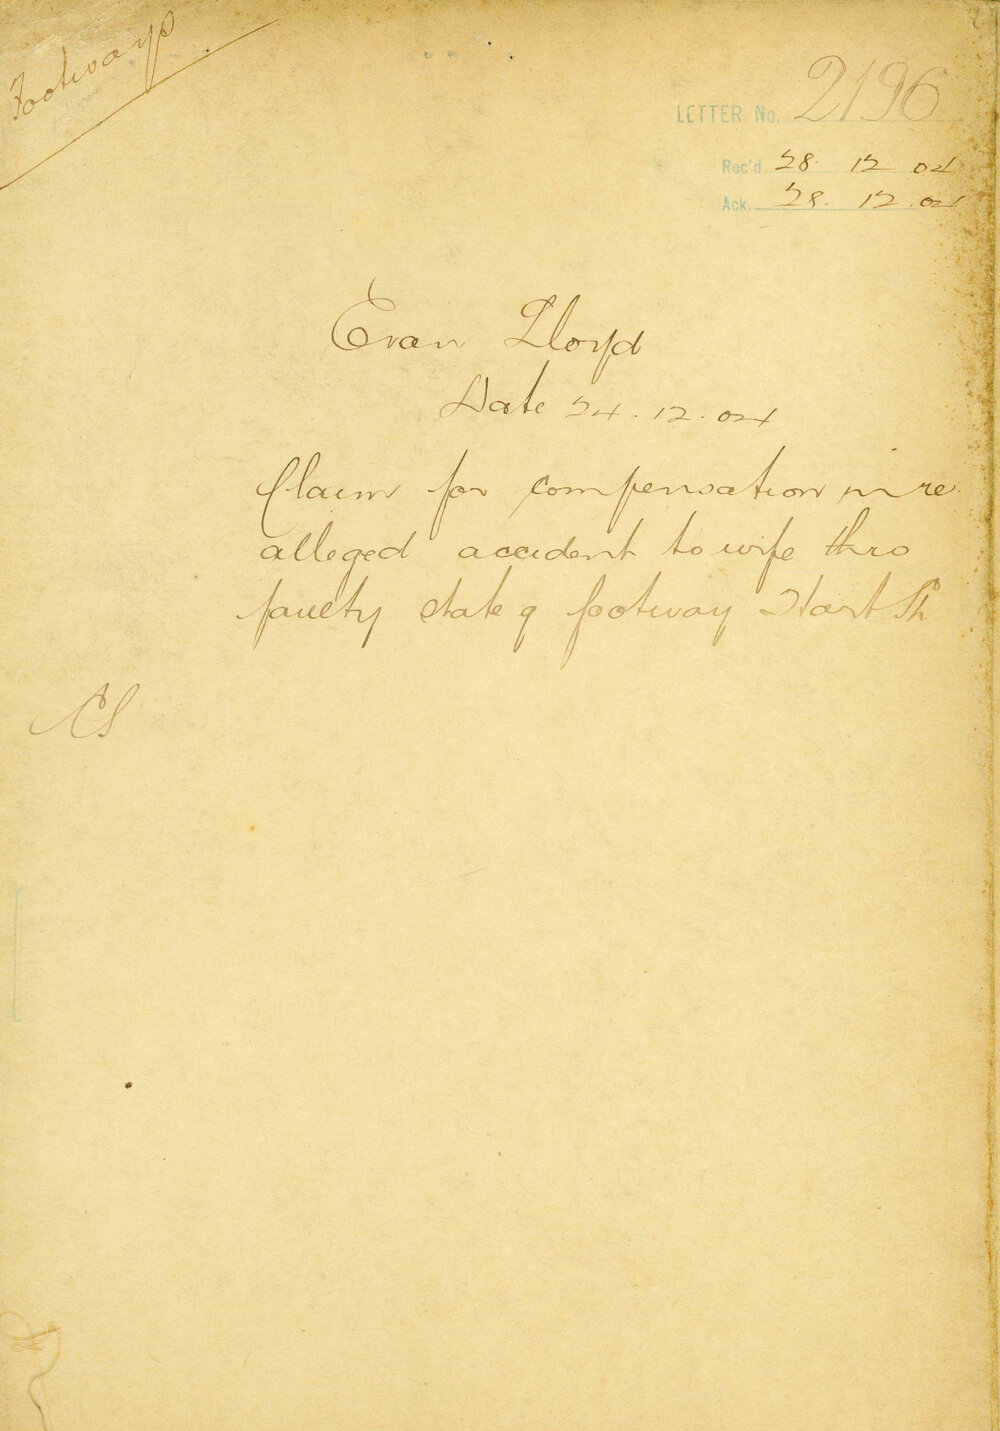 Footways
LETTER No. 2196
Rec'd 28 12 04
Ack. 28. 12. 04
Evan Lloyd
Date 24. 12. 04
Claim for compensation in re
alleged accident to wife thro
faulty state of footway Hart St
CS